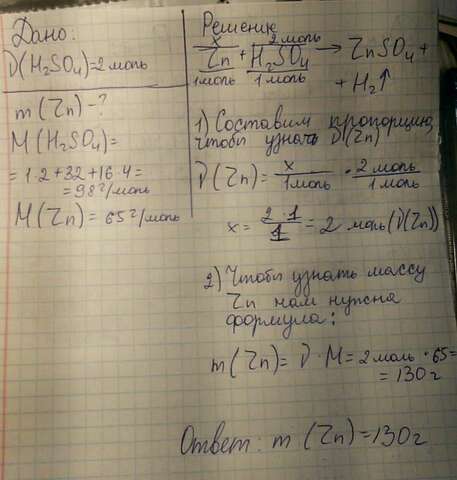 Дано:
ν(H₂SO₄)=2моль
m(Zn)-?
M(H₂SO₄)=
=1·2+32+16·4=
=98г/моль
M(Zn)=65г/моль
Решение
x 2моль
Zn + H₂SO₄ → ZnSO₄+
1моль 1моль
+H₂↑
1) Составим пропорцию,
чтобы узнать ν(Zn)
ν(Zn)= x/1моль · 2моль/1моль
x = 2·1/1 = 2 моль(ν(Zn))
2) Чтобы узнать массу
Zn нам нужна
формула:
m(Zn)= ν·M=2моль·65=
=130г
Ответ: m(Zn)=130г